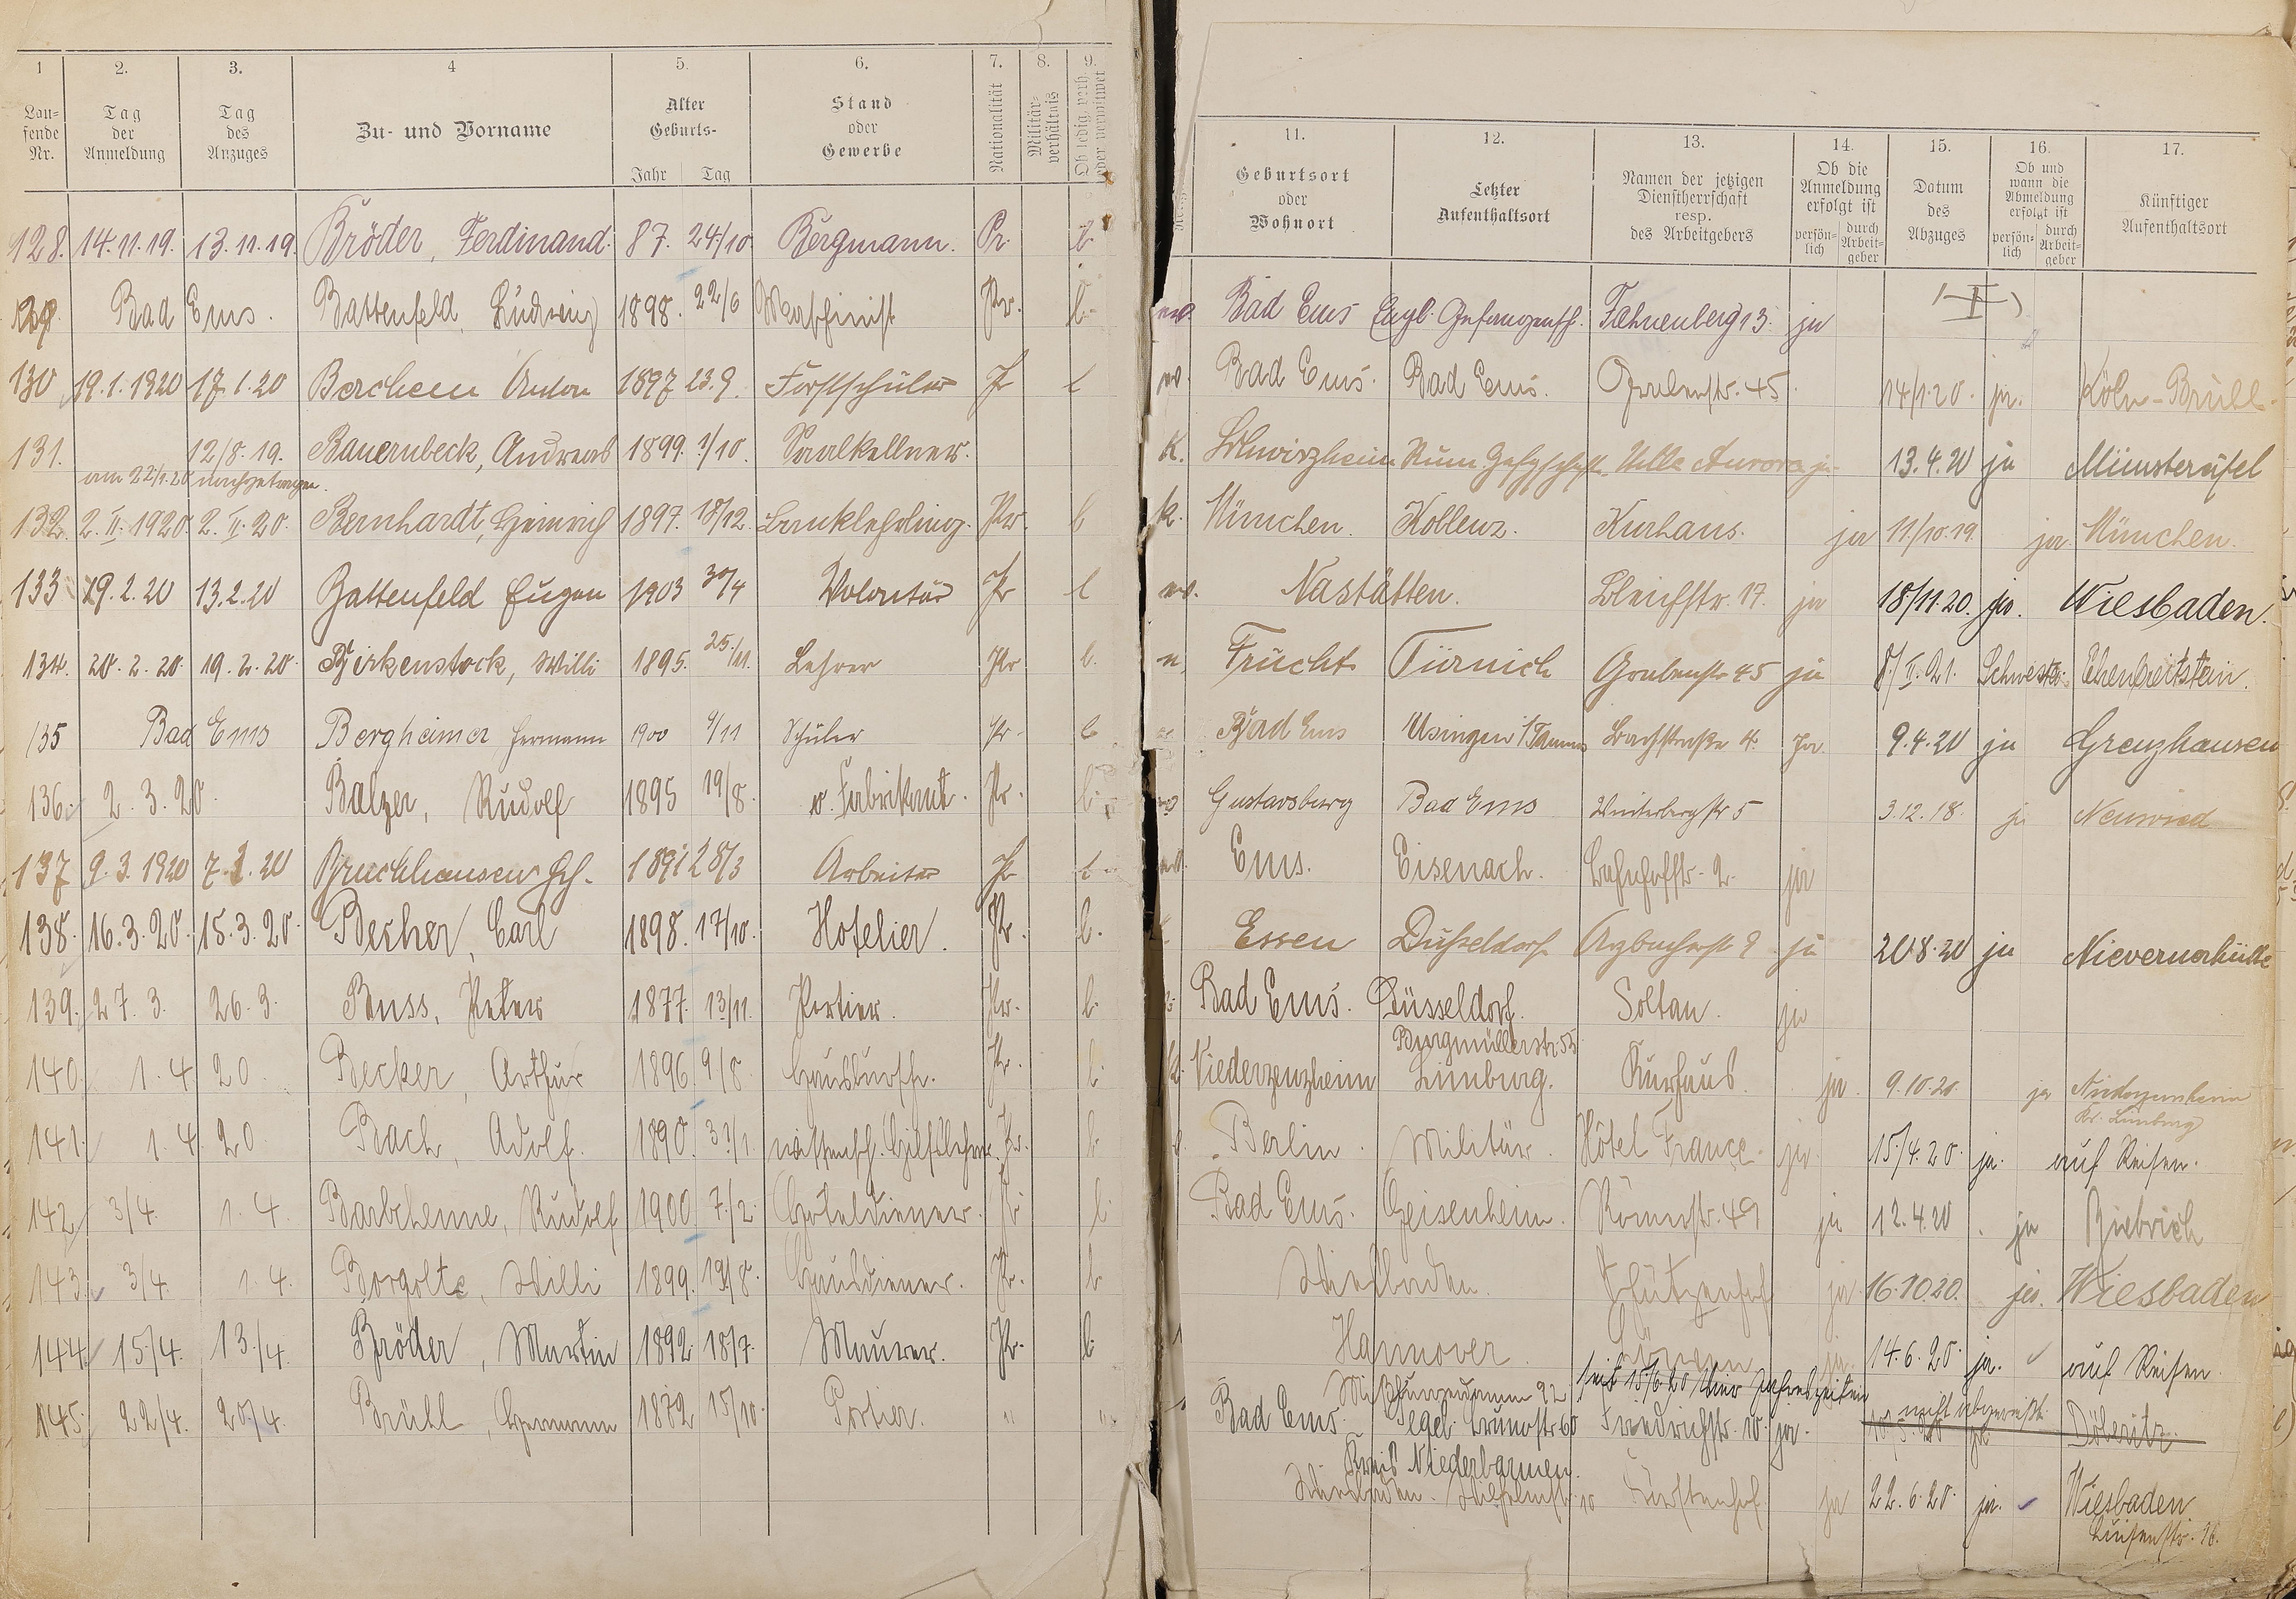 1
2.
3.
4
5.
6.
7.
8.
9.
Lau-
fende
Nr.
Tag
der
Anmeldung
Tag
des
Anzuges
Zu- und Vorname
Alter
Geburts-
Jahr Tag
Stand
oder
Gewerbe
Nationalität
Militär-
verhältnis
Ob ledig, verh.
oder verwitwet
128. 14.11.19. 13.11.19. Bröder, Ferdinand. 87. 24/10 Bergmann. Pr. l.
129. Bad Ems. Battenfeld, Ludwig 1898. 22/6 Maschinist Pr. l.
130 19.1.1920 17.1.20 Berchem Anton 1897 23.9. Forstschüler Pr l
131. 12/8.19. Bauernbeck, Andreas 1899. 1/10. Saalkellner.
am 22/1.20 nachgetragen.
132. 2.II.1920. 2.II.20. Bernhardt, Heinrich 1897. 18/12. Banklehrling. Pr. l
133 19.2.20 13.2.20 Battenfeld Eugen 1903 30/4 Volontär Pr l
134. 20.2.20. 19.2.20. Birkenstock, Willi 1895. 25./11. Lehrer Pr l.
135 Bad Ems Bergheimer Hermann 1900 9/11 Schüler Pr. l
136. 2.3.20. Balzer, Rudolf 1895 19/8. Fabrikant. Pr. l.
137 9.3.1920 7.3.20 Bruchhausen 28/3 Arbeiter Pr l.
138. 16.3.20. 15.3.20. Becher, Carl 1898. 17/10. Hotelier. Pr. l.
139. 27.3. 26.3. Buss, Peter 1877. 13/11. Portier. Pr. l.
140. 1.4 20. Becker, Arthur 1896 9/8. Hausbursche. Pr. l.
141. 1.4.20 Bach, Adolf. 1890. 31/1. wissensch. Hilfslehrer. Pr. l.
142 3/4. 1.4. Barbehenne, Rudolf 1900 7./2. Hoteldiener. Pr l.
143. 3/4. 1.4. Borgolte, Willi 1899. 19/8. Hausdiener. Pr. l.
144. 15/4. 13./4. Bröder, Martin 1892 18/7. Maurer. Pr. l.
145. 22/4. 20/4. Brühl, Hermann 1872 15/10. Portier. " "
11.
12.
13.
14.
15.
16.
17.
Geburtsort
oder
Wohnort
Letzter
Aufenthaltsort
Namen der jetzigen
Dienstherrschaft
resp.
des Arbeitgebers
Ob die
Anmeldung
erfolgt ist
persön-
lich
durch
Arbeit-
geber
Datum
des
Abzuges
Ob und
wann die
Abmeldung
erfolgt ist
persön-
lich
durch
Arbeit-
geber
Künftiger
Aufenthaltsort
Bad Ems Engl. Gefangensch. Fahnenberg 13. ja
Bad Ems. Bad Ems. Grabenstr. 45. 14/1.20. ja. Köln-Brühl.
Rum. Villa Aurora ja 13.4.20 ja Münstereifel
k. München. Koblenz. Kurhaus. ja 11/10.19. ja. München.
Nastätten. Bleichstr. 17. ja 18/11.20. ja. Wiesbaden.
Frücht Türnich Grabenstr 45 ja 8/II.21. Schwester. Ehrenbreitstein.
Bad Ems Usingen /Taunus Bachstraße 4. Ja 9.4.20 ja Grenzhausen
Gustavsburg Bad Ems Winterbergstr 5 3.12.18. ja Neuwied
Ems. Eisenach. Bahnhofstr. 2. ja
Essen Düsseldorf Arzbacherstr 9 ja 20.8.20 ja Nievernerhütte
Bad Ems. Düsseldorf. Soltau. ja
Burgmüllerstr. 55
k. Niederzeuzheim Limburg. Kurhaus. ja. 9.10.20. ja Niederzeuzheim
Kr. Limburg
Berlin. Militär. Hôtel France. ja. 15./4.20. ja. auf Reisen.
Bad Ems. Geisenheim. Römerstr. 49 ja 12.4.20. ja Biebrich
Wiesbaden. Schützenhof ja. 16.10.20. ja. Wiesbaden
Hannover. ja. 14.6.20. ja. auf Reisen.
seit 15/6.20 Vier Jahreszeiten
Bad Ems. Tegel Brunostr 60 Friedrichstr. 10. ja. nicht abgereist. Döberitz.
Kreis Niederbarmen.
Wiesbaden. 10 Fürstenhof. ja 22.6.20. ja. Wiesbaden.
Luisenstr. 16.